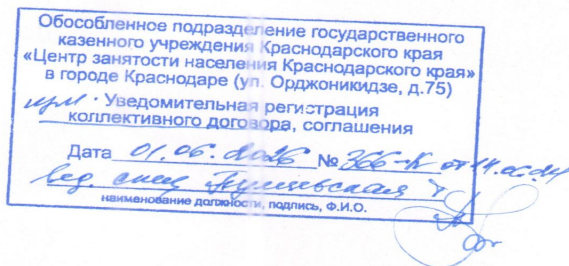 Обособленное подразделение государственного
казенного учреждения Краснодарского края
«Центр занятости населения Краснодарского края»
в городе Краснодаре (ул. Орджоникидзе, д.75)
изм. Уведомительная регистрация
коллективного договора, соглашения
Дата 01.06.2026 № 366-К от 14.06.24
вед. спец
наименование должности, подпись, Ф.И.О.